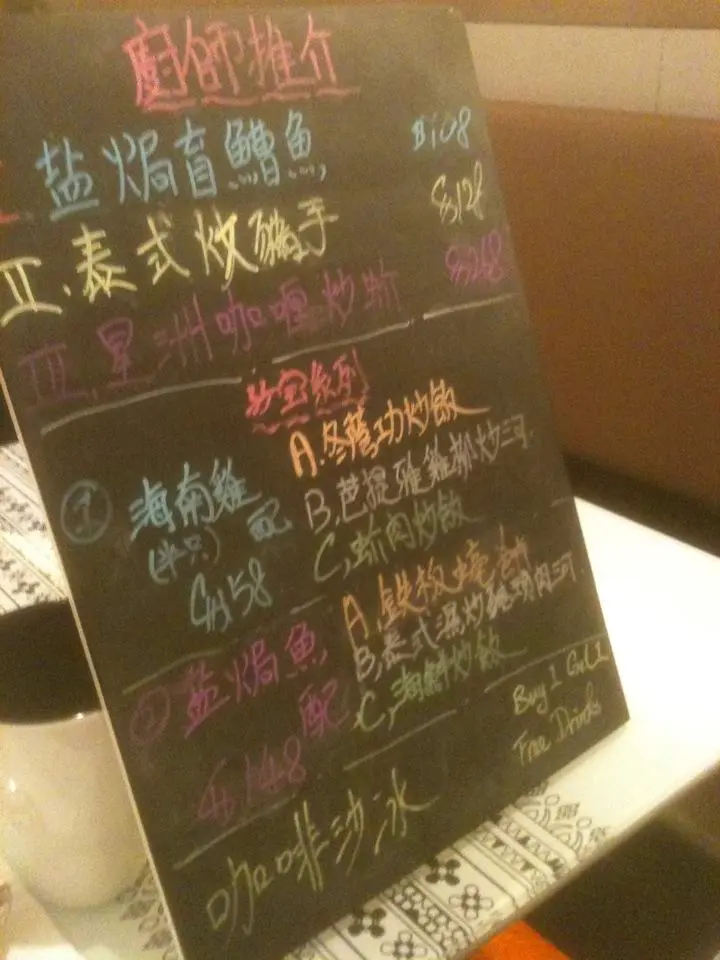 廚師推介
盐焗盲鰽魚 $108
II. 泰式炆豬手 $128
III. 星洲咖喱炒蚧
孖宝系列
① 海南雞
(半只) 配
$158
A. 冬蔭功炒飯
B. 芭提雅雞 炒河
C. 蚧肉炒飯
② 盐焗魚
配
$148
A. 鉄板燒
B. 泰式濕炒豬頸肉河
C. 海鮮炒飯
Buy 1 Get 1
Free Drinks
咖啡沙冰